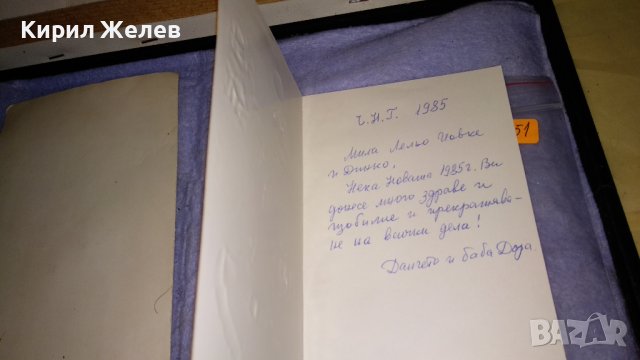 Кирил Желев
Ч.Н.Г. 1985
Мила Лельо Цовке
и Динко,
Нека Новата 1985 г. Ви
донесе много здраве и
изобилие и прекратява-
не на всички дела!
Дангето и баба Деда
51
BAZAR